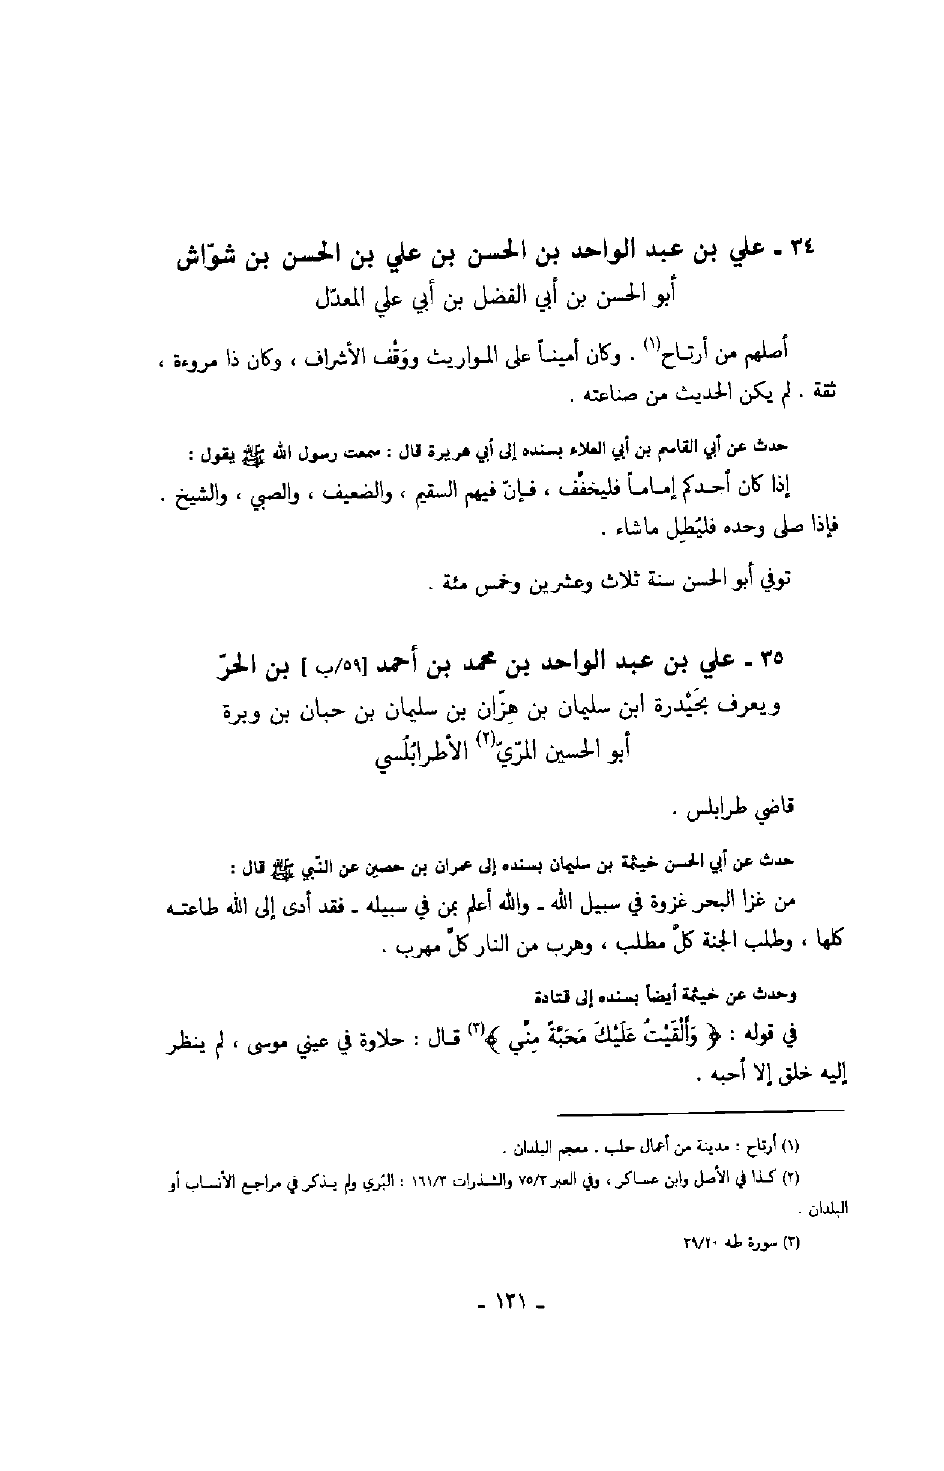 ٣٤ ـ علي بن عبد الواحد بن الحسن بن علي بن الحسن بن شوّاش
أبو الحسن بن أبي الفضل بن أبي علي المعدّل
أصلهم من أرتاح(١) . وكان أميناً على المواريث ووَقْف الأشراف ، وكان ذا مروءة ،
ثقة . لم يكن الحديث من صناعته .
حدث عن أبي القاسم بن أبي العلاء بسنده إلى أبي هريرة قال : سمعت رسول الله ﷺ يقول :
إذا كان أحدكم إماماً فليخفِّف ، فإنّ فيهم السقيم ، والضعيف ، والصبي ، والشيخ .
فإذا صلى وحده فليُطِل ماشاء .
توفي أبو الحسن سنة ثلاث وعشرين وخمس مئة .
٣٥ ـ علي بن عبد الواحد بن محمد بن أحمد [٥٩/ب] بن الحرّ
ويعرف بحَيْدرة ابن سليمان بن هزّان بن سليمان بن حبان بن وبرة
أبو الحسين المرّيّ(٢) الأطرابُلُسي
قاضي طرابلس .
حدث عن أبي الحسن خيثمة بن سليمان بسنده إلى عمران بن حصين عن النّبي ﷺ قال :
من غزا البحر غزوة في سبيل الله ـ والله أعلم بمن في سبيله ـ فقد أدى إلى الله طاعته
كلها ، وطلب الجنة كلَّ مطلب ، وهرب من النار كلَّ مهرب .
وحدث عن خيثمة أيضاً بسنده إلى قتادة
في قوله : ﴿ وَأَلْقَيْتُ عَلَيْكَ مَحَبَّةً مِنِّي ﴾(٣) قال : حلاوة في عيني موسى ، لم ينظر
إليه خلق إلا أحبه .
(١) أرتاح : مدينة من أعمال حلب . معجم البلدان .
(٢) كذا في الأصل وابن عساكر ، وفي العبر ٧٥/٣ والشذرات ١٦١/٣ : البَري ولم يذكر في مراجع الأنساب أو
البلدان .
(٣) سورة طه ٣٩/٢٠
ـ ١٢١ ـ